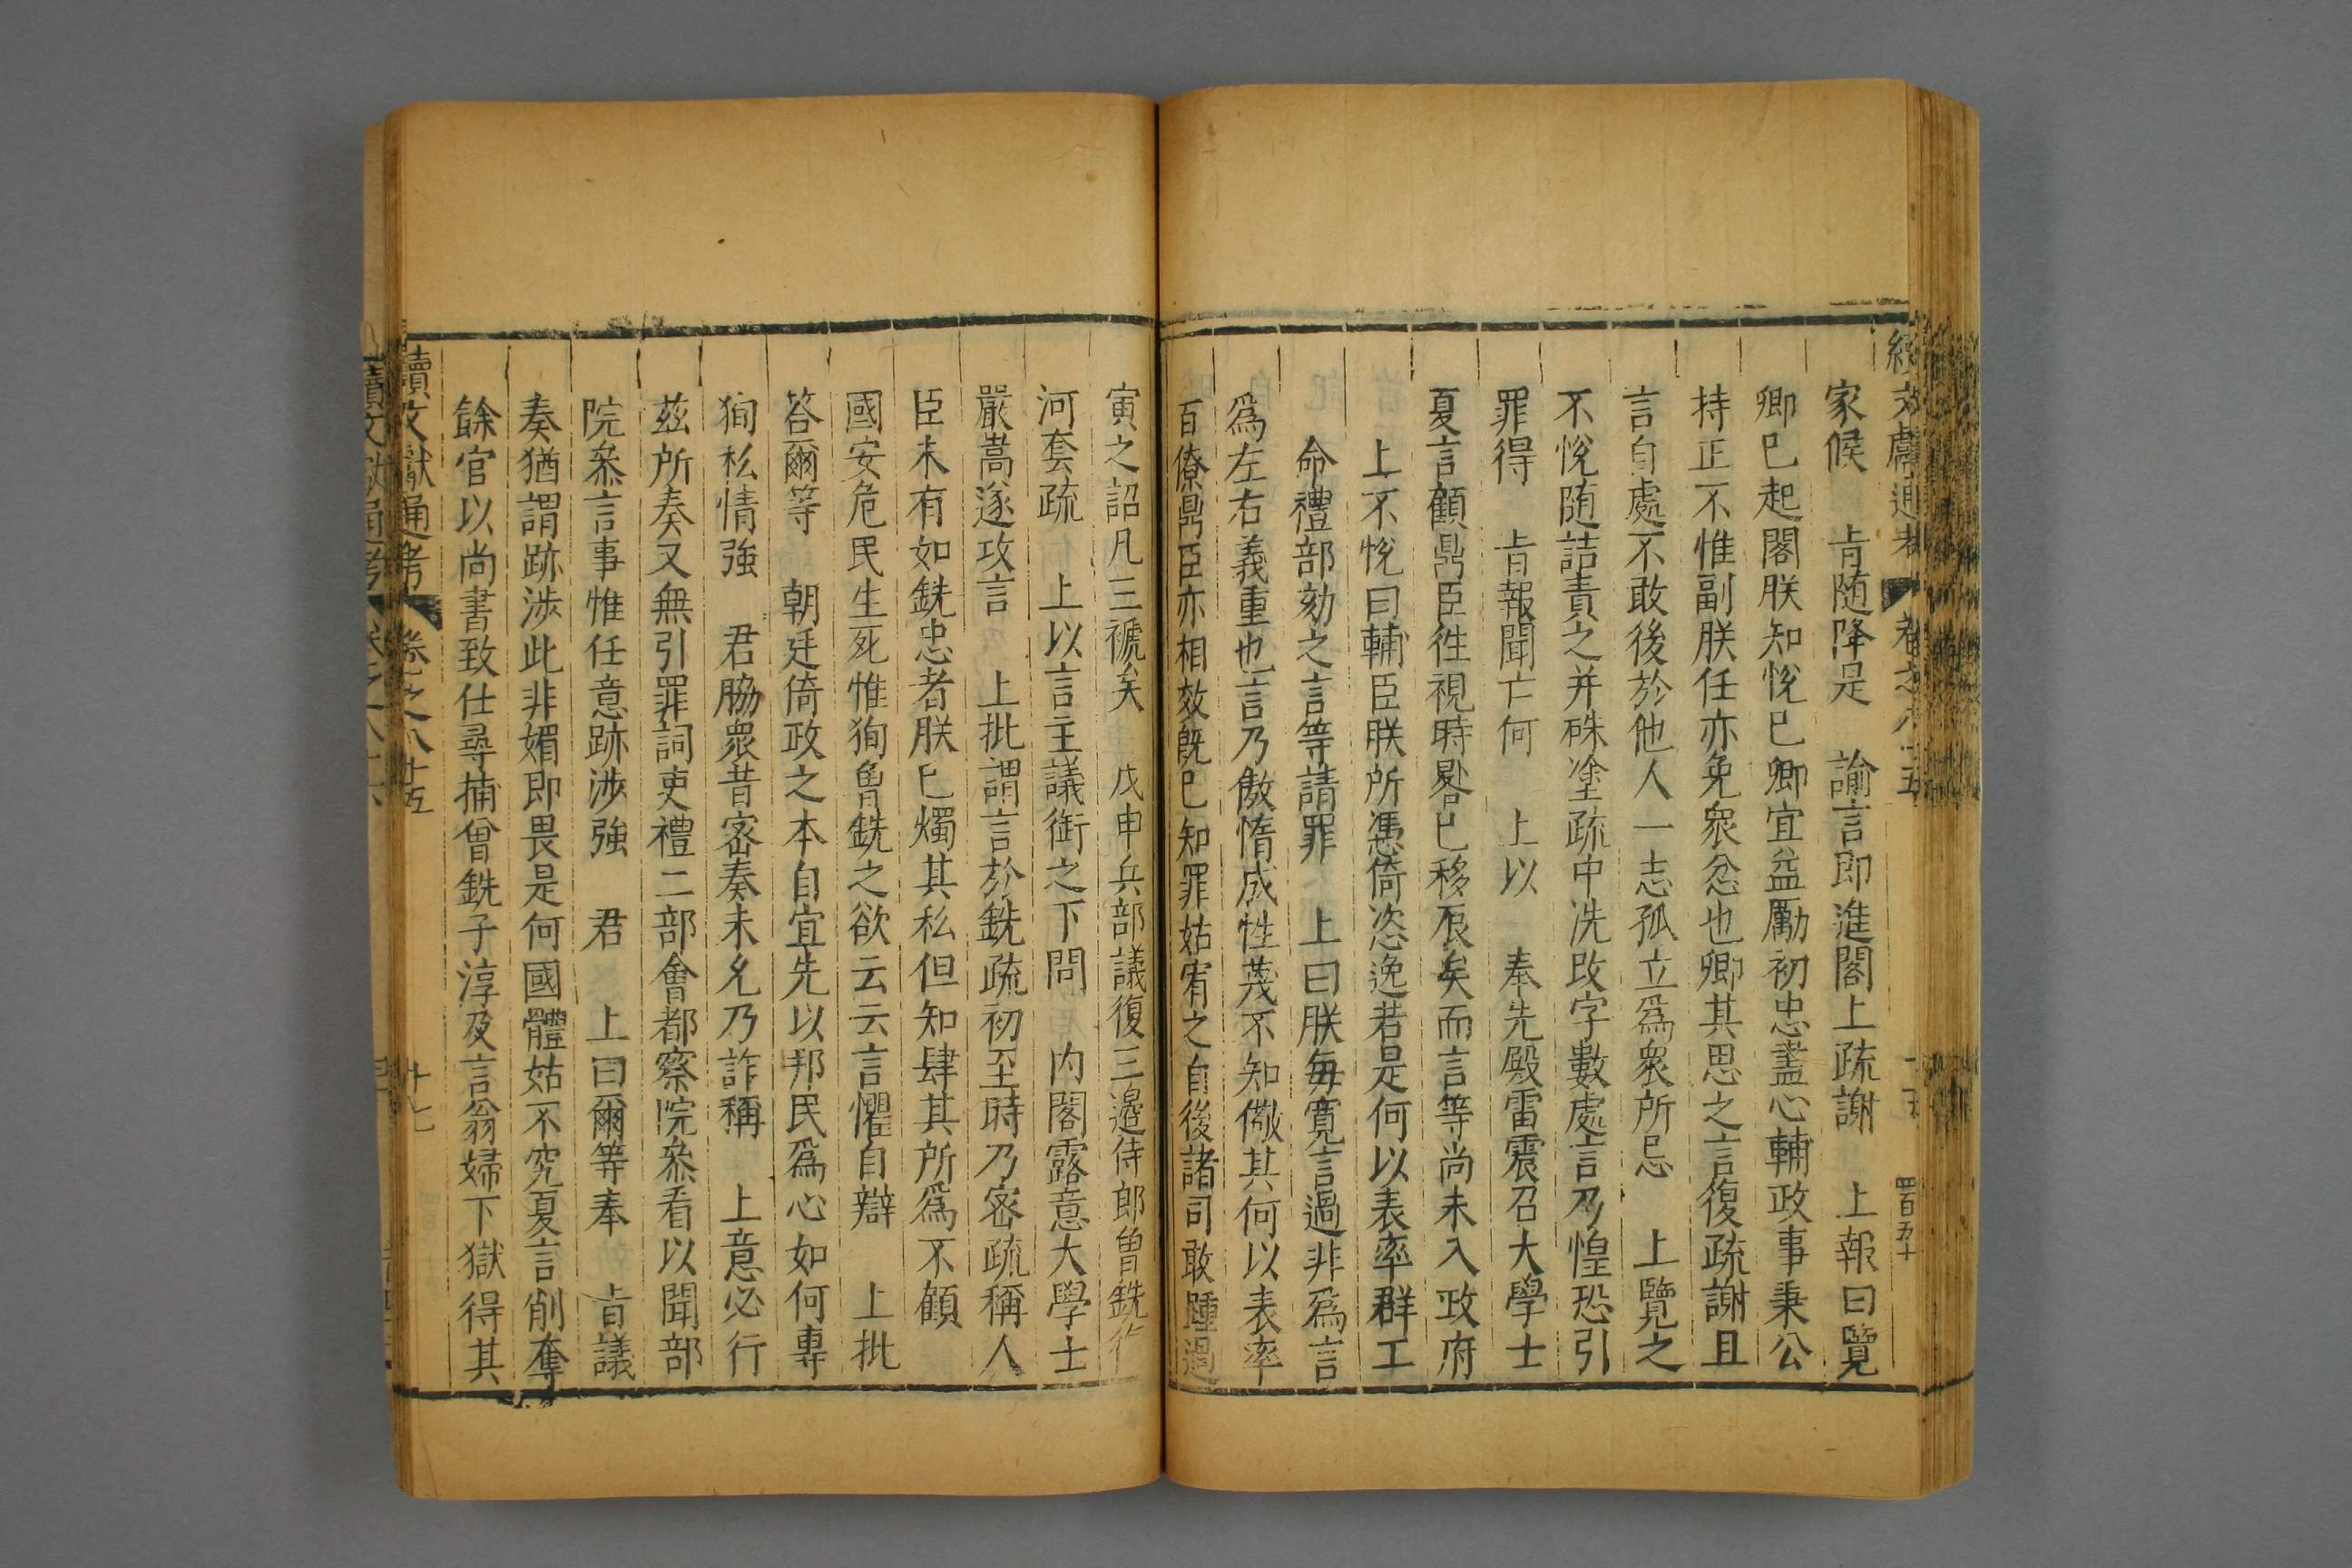 續文獻通考
卷之八十五
四百五十
家候　旨随降是　諭言即進閣上疏謝　上報曰覽
卿已起閣朕知悅已卿宜益勵初忠盡心輔政事秉公
持正不惟副朕任亦免衆忿也卿其思之言復疏謝且
言自處不敢後於他人一志孤立爲衆所忌　上覽之
不悅随詰責之并硃塗疏中洗改字數處言乃惶恐引
罪得　旨報聞亡何　上以　奉先殿雷震召大學士
夏言顧鼎臣徃視時晷已移辰矣而言等尚未入政府
上不悅曰輔臣朕所憑倚恣逸若是何以表率群工
命禮部劾之言等請罪　上曰朕每寬言過非爲言
爲左右義重也言乃傲惰成性蔑不知儆其何以表率
百僚鼎臣亦相效旣已知罪姑宥之自後諸司敢踵過
寅之詔凡三褫矣　戊申兵部議復三邊侍郎曾銑作
河套疏　上以言主議銜之下問　内閣露意大學士
嚴嵩遂攻言　上批謂言於銑疏初至時乃密疏稱人
臣未有如銑忠者朕已燭其私但知肆其所爲不顧
國安危民生死惟狥曾銑之欲云云言懼自辯　上批
答爾等　朝廷倚政之本自宜先以邦民爲心如何專
狥私情強　君脇衆昔密奏未允乃詐稱　上意必行
茲所奏又無引罪詞吏禮二部會都察院叅看以聞部
院叅言事惟任意跡涉強　君　上曰爾等奉　旨議
奏猶謂跡涉此非媚即畏是何國體姑不究夏言削奪
餘官以尚書致仕尋捕曾銑子淳及言翁婦下獄得其
續文獻通考
卷之八十五
廿七